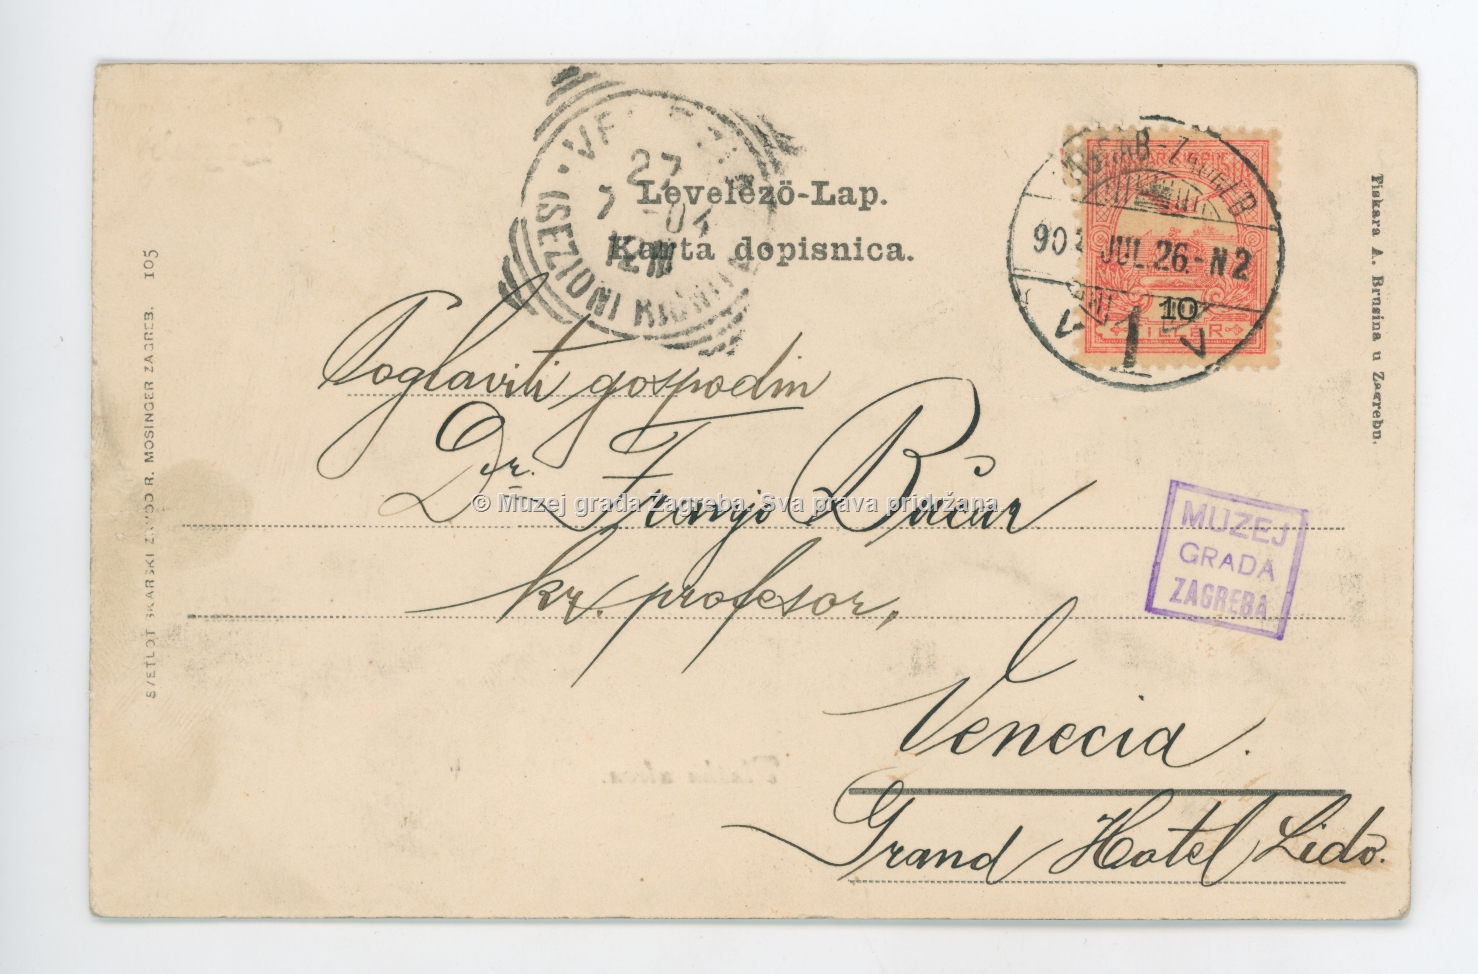 Levelező-Lap.
Karta dopisnica.
27
7 -04
12M
(SEZIONI RIUNITE)
ZAGRAB-ZAGREB
904 JUL. 26.-N2
1
10
FILLÉR
Poglaviti gospodin
Dr. Franjo Bučar
kr. profesor,
Venecia.
Grand Hotel Lido.
MUZEJ
GRADA
ZAGREBA
Tiskara A. Brusina u Zagrebu.
SVJETLOTISKARSKI ZAVOD R. MOSINGER ZAGREB. 105
© Muzej grada Zagreba. Sva prava pridržana.